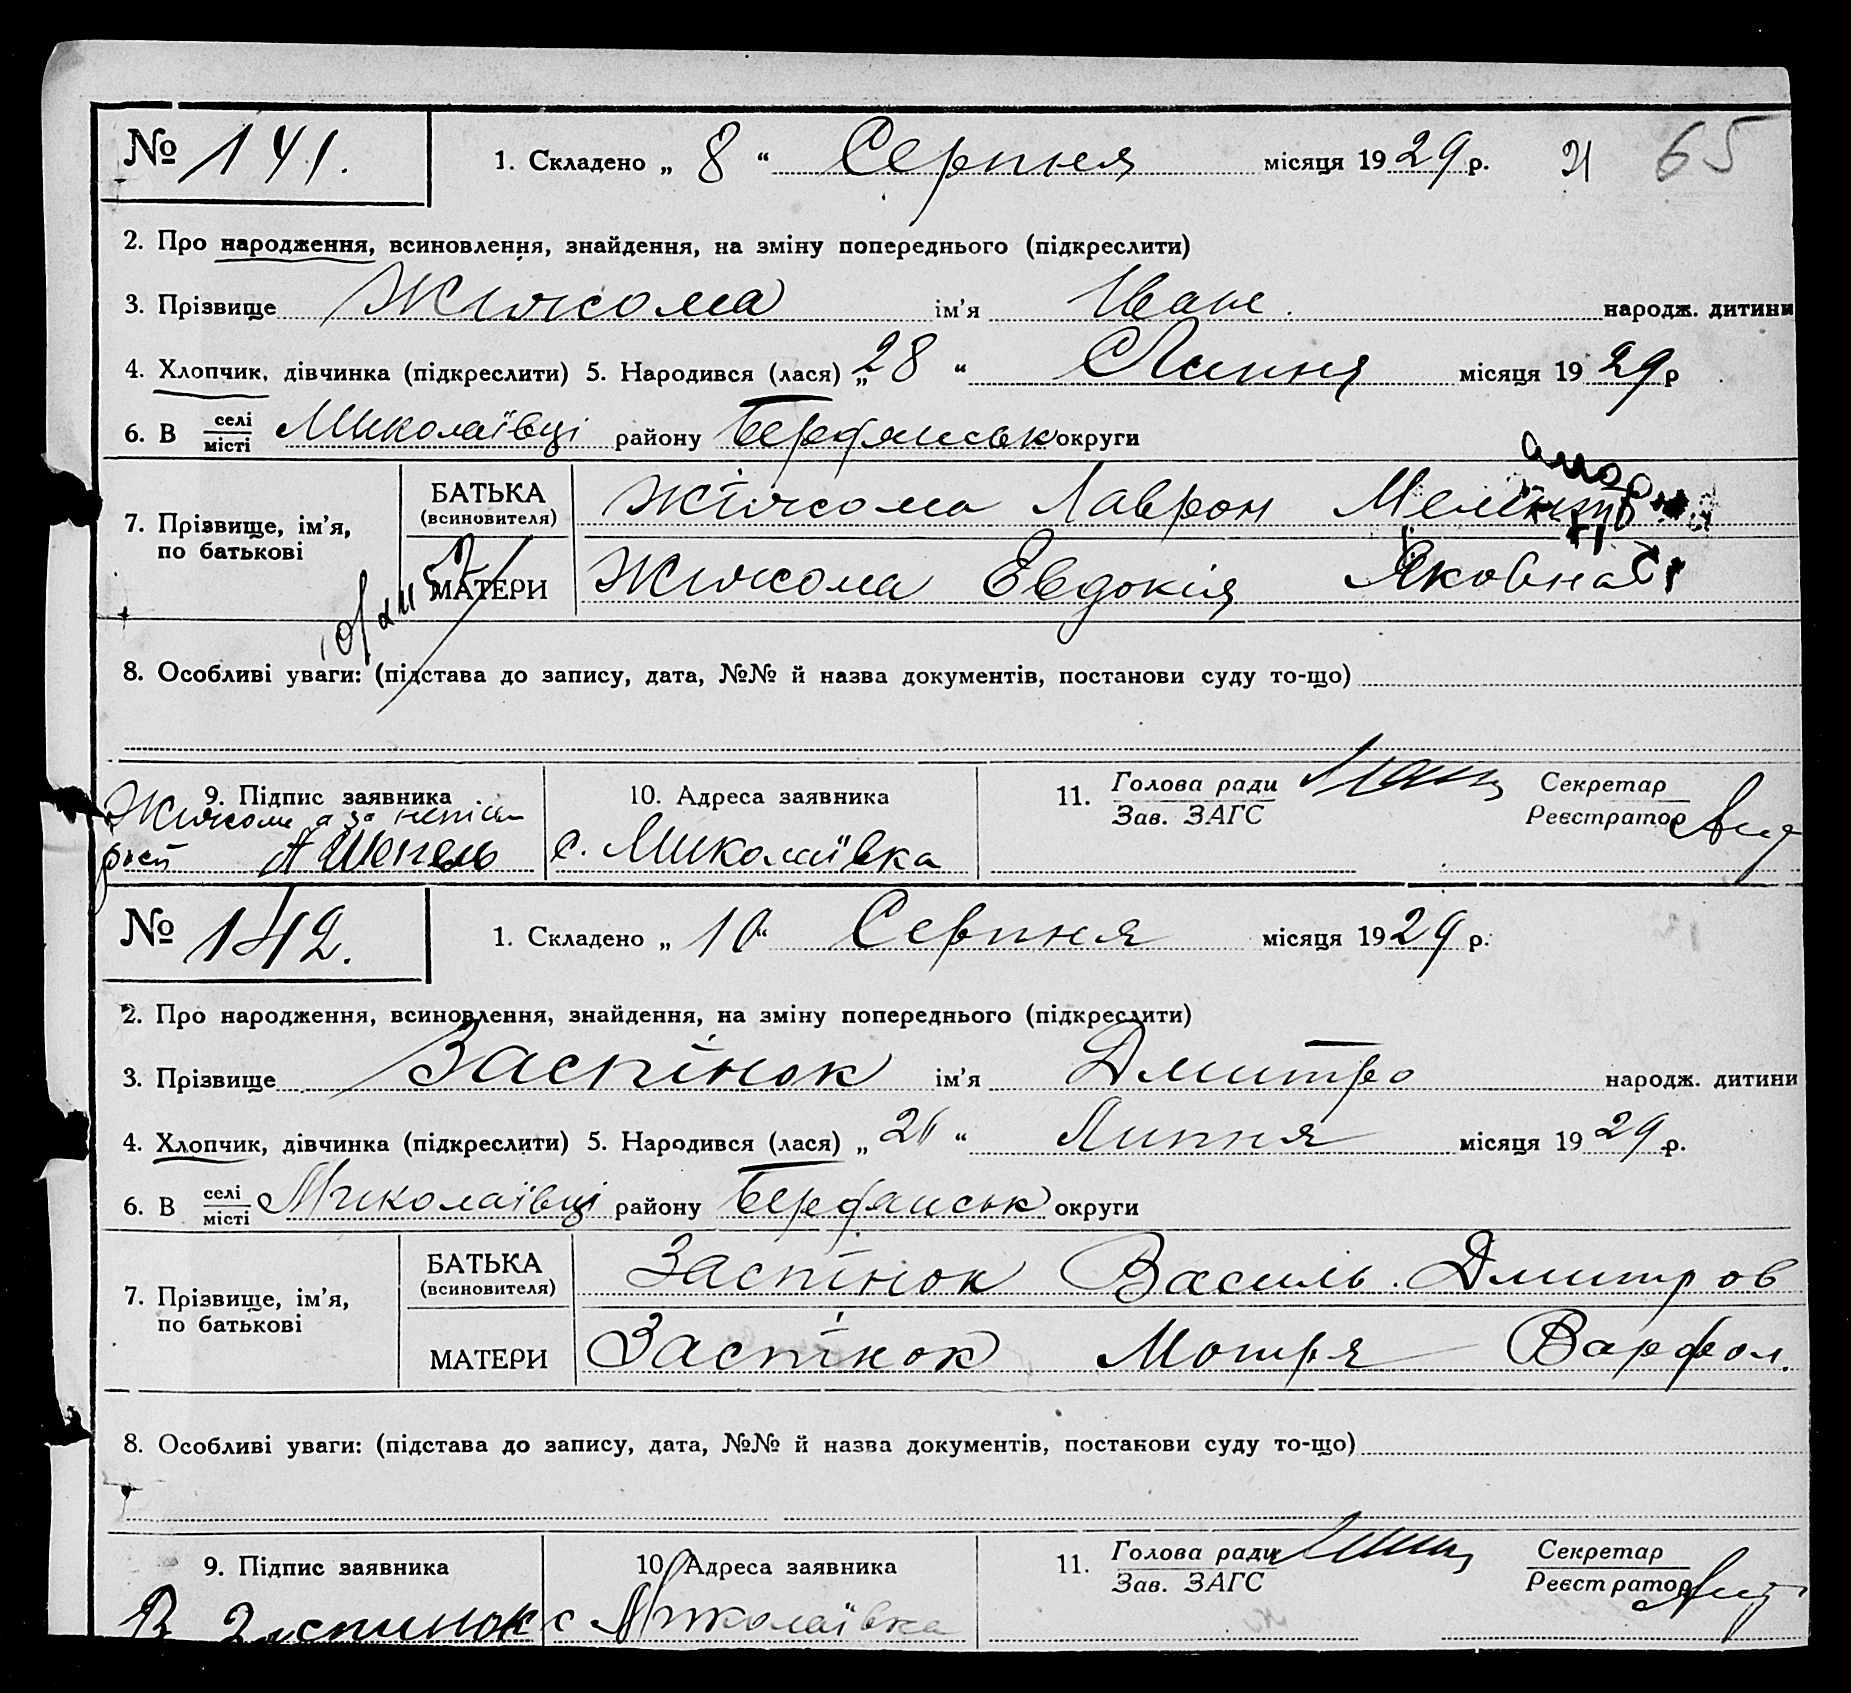 № 141. 1. Складено „ 8 “ Серпня місяця 1929 р. 21 65
2. Про народження, всиновлення, знайдення, на зміну попереднього (підкреслити)
3. Прізвище ім’я Иван. народж. дитини
4. Хлопчик, дівчинка (підкреслити) 5. Народився (лася) „ 28 “ Липня місяця 1929 р
6. В селі місті Миколаївці району Бердянськ округи
7. Прізвище, ім’я, по батькові
БАТЬКА (всиновителя) Лаврон
МАТЕРИ Евдокія Яковна
8. Особливі уваги: (підстава до запису, дата, №№ й назва документів, постанови суду то-що)
9. Підпис заявника 10. Адреса заявника 11. Голова ради Зав. ЗАГС Секретар Реєстратор
с. Миколаївка
№ 142. 1. Складено „ 10 “ Серпня місяця 1929 р.
2. Про народження, всиновлення, знайдення, на зміну попереднього (підкреслити)
3. Прізвище Заспінок ім’я Дмитро народж. дитини
4. Хлопчик, дівчинка (підкреслити) 5. Народився (лася) „ “ Липня місяця 1929 р.
6. В селі місті Миколаївці району Бердянськ округи
7. Прізвище, ім’я, по батькові
БАТЬКА (всиновителя) Заспінок Василь Дмитров
МАТЕРИ Заспінок Мотря Варфол.
8. Особливі уваги: (підстава до запису, дата, №№ й назва документів, постанови суду то-що)
9. Підпис заявника 10. Адреса заявника 11. Голова ради Зав. ЗАГС Секретар Реєстратор
В Заспинок с Миколаївка